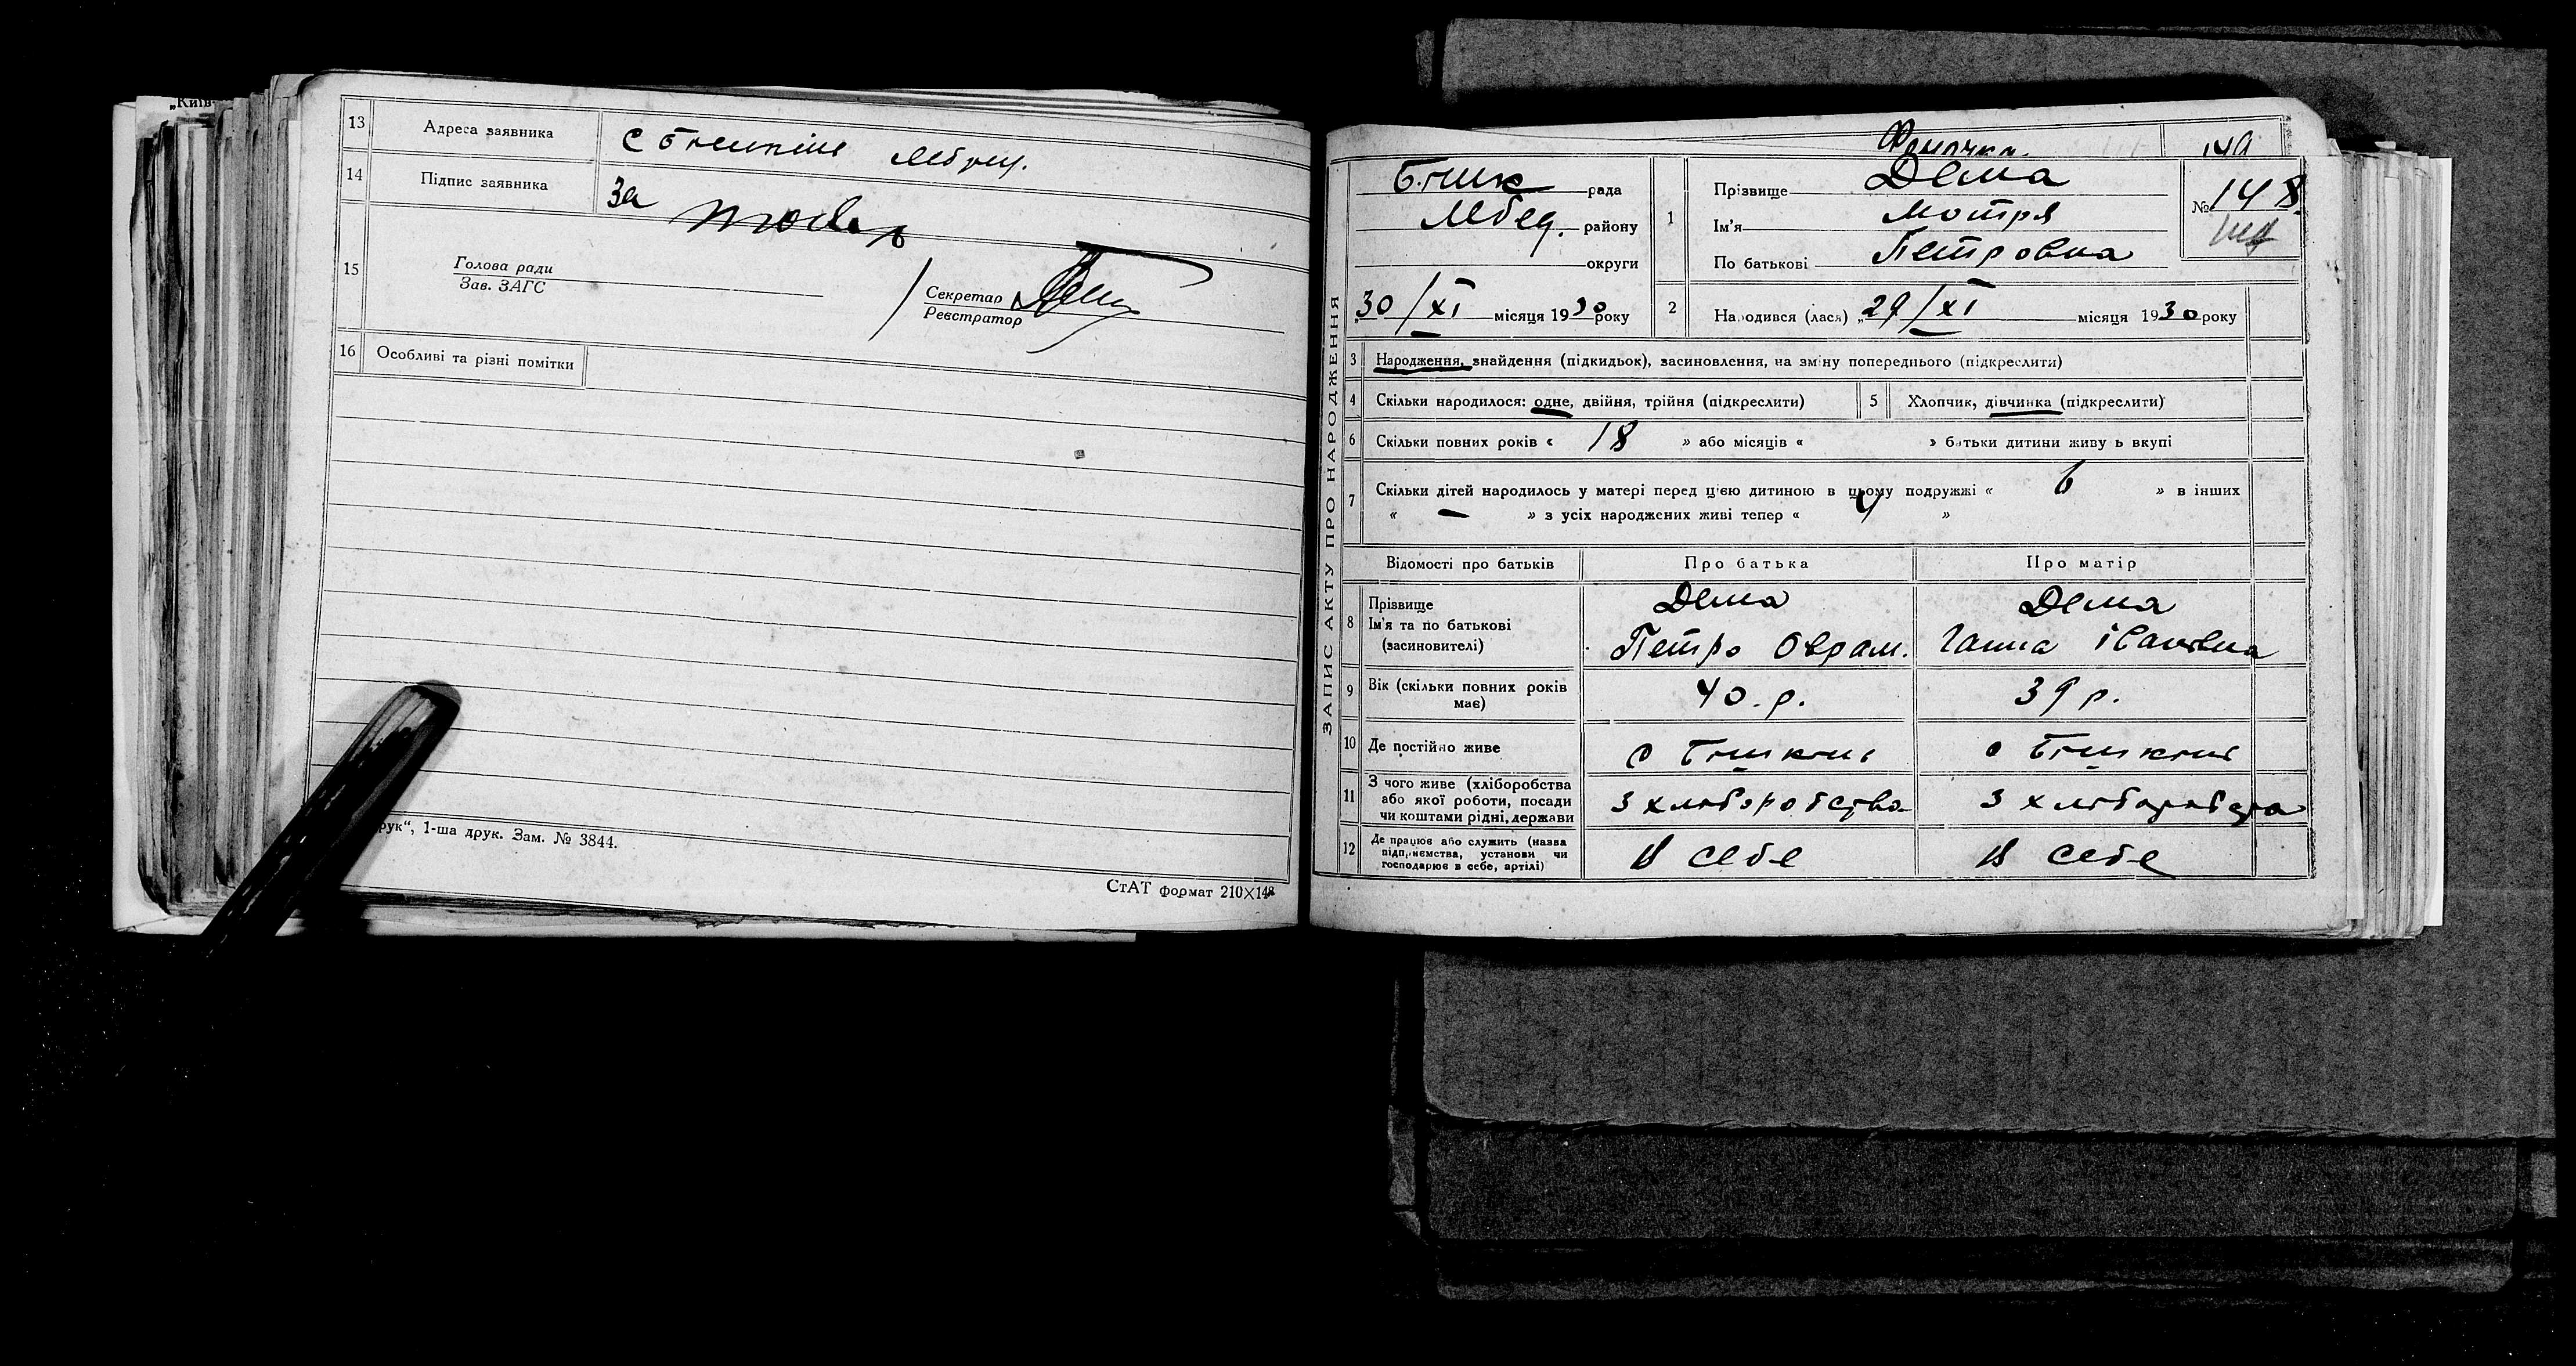 „Київ-
13 Адреса заявника с Бішкінь Лебрец.
14 Підпис заявника За
15 Голова ради
Зав. ЗАГС
Секретар
Реєстратор
16 Особливі та різні помітки
рук“, 1-ша друк. Зам. № 3844.
СтАТ формат 210×148
149
ЗАПИС АКТУ ПРО НАРОДЖЕННЯ
Бішк рада
Лебед. району
округи
30/XI місяця 1930 року
1 Прізвище Дема
Ім'я Мотря
По батькові Петровна
№ 148
2 Народився (лася) „29/XI місяця 1930 року
3 Народження, знайдення (підкидьок), засиновлення, на зміну попереднього (підкреслити)
4 Скільки народилося: одне, двійня, трійня (підкреслити) 5 Хлопчик, дівчинка (підкреслити)
6 Скільки повних років « 18 » або місяців « » батьки дитини живуть вкупі
7 Скільки дітей народилось у матері перед цією дитиною в цьому подружжі « 6 » в інших
« — » з усіх народжених живі тепер « 4 »
Відомості про батьків Про батька Про матір
8 Прізвище Дема Дема
Ім'я та по батькові Петро Оврам. Ганна Івановна
(засиновителі)
9 Вік (скільки повних років має) 40. р. 39 р.
10 Де постійно живе с Бішкінь с Бішкінь
11 З чого живе (хліборобства або якої роботи, посади чи коштами рідні, держави З хліборобства З хліборобства
12 Де працює або служить (назва підприємства, установи чи господарює в себе, артілі) в себе в себе